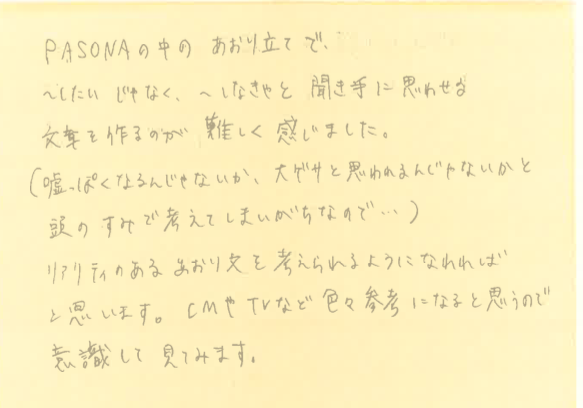 PASONAの中の あおり立てで、
〜したい じゃなく、〜しなきゃと 聞き手に思わせる
文章を作るのが 難しく 感じました。
(嘘っぽくなるんじゃないか、大ゲサと思われるんじゃないかと
頭の すみで 考えて しまいがちなので…)
リアリティのある あおり文を 考えられるようになれれば
と思います。CMやTVなど 色々参考になると思うので
意識して 見てみます。